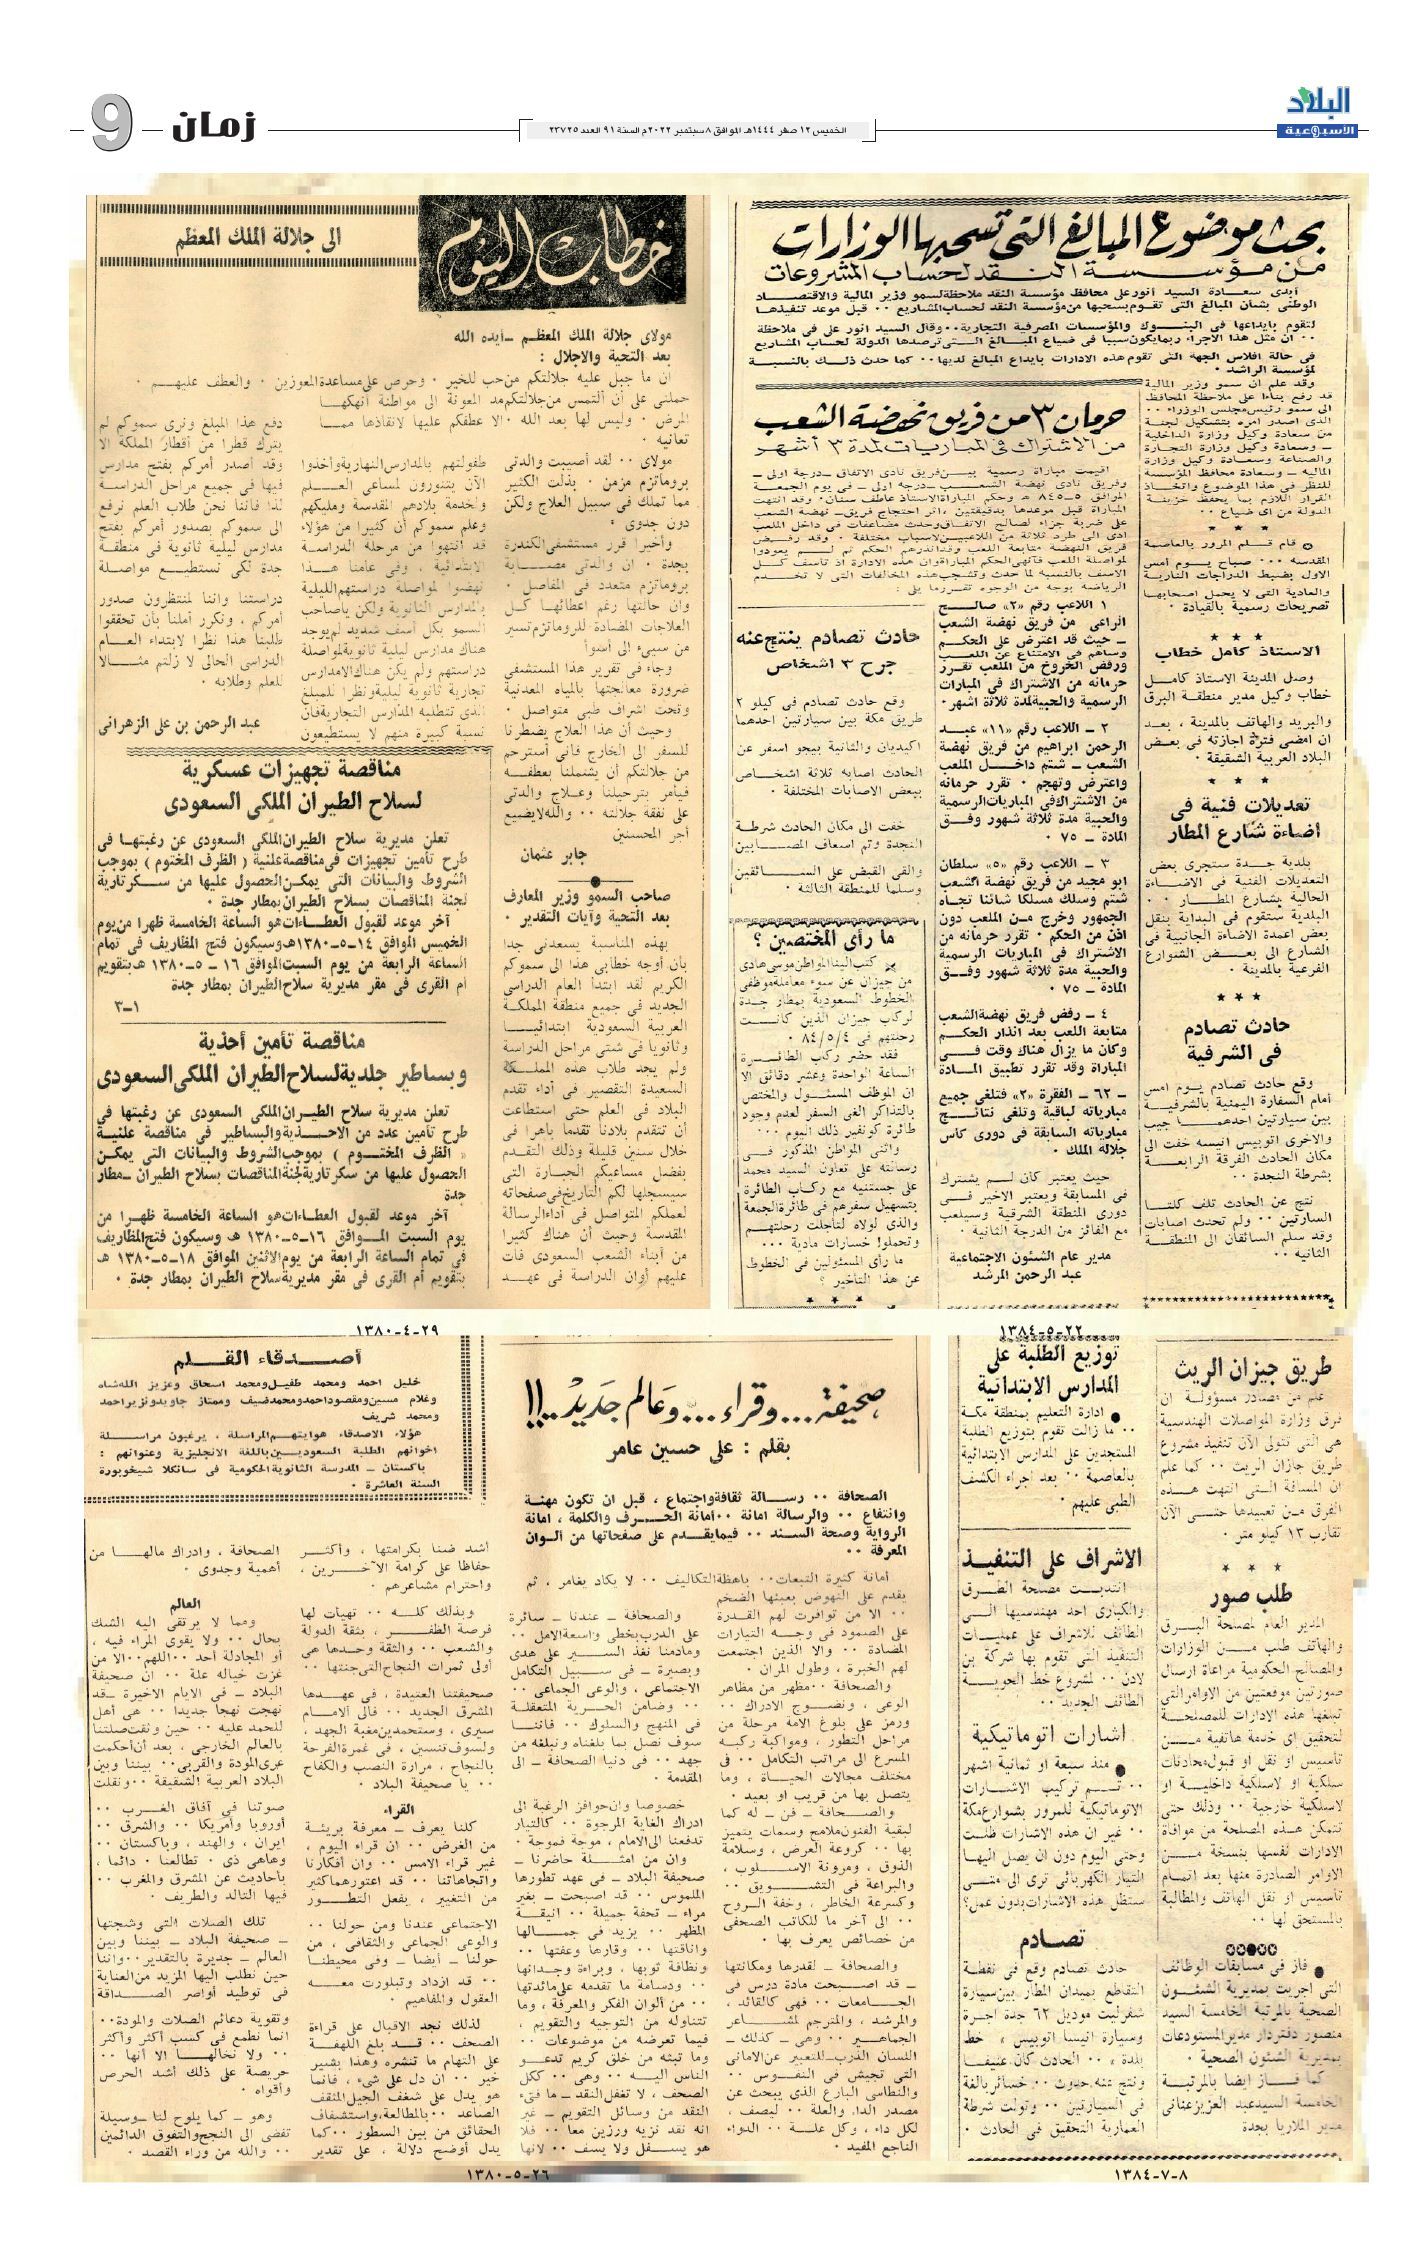 البلاد
الأسبوعية
الخميس ١٢ صفر ١٤٤٤هـ الموافق ٨ سبتمبر ٢٠٢٢م السنة ٩١ العدد ٢٣٧٢٥
زمان
9
بحث موضوع المبالغ التى تسحبها الوزارات
من مؤسسة النقد لحساب المشروعات
أبدى سعادة السيد أنور على محافظ مؤسسة النقد ملاحظة لسمو وزير المالية والاقتصاد
الوطنى بشأن المبالغ التى تقوم بسحبها من مؤسسة النقد لحساب المشاريع ٠٠ قبل موعد تنفيذها
لتقوم بايداعها فى البنوك والمؤسسات المصرفية التجارية ٠٠ وقال السيد انور على فى ملاحظة
٠٠ ان مثل هذا الاجراء ربما يكون سببا فى ضياع المبالغ التى ترصدها الدولة لحساب المشاريع
فى حالة افلاس الجهة التى تقوم هذه الادارات بايداع المبالغ لديها ٠٠ كما حدث ذلك بالنسبة
لمؤسسة الراشد ٠
وقد علم ان سمو وزير المالية
قد رفع بناءا على ملاحظة المحافظ
الى سمو رئيس مجلس الوزراء ٠٠
الذى اصدر امره بتشكيل لجنة
من سعادة وكيل وزارة الداخلية
ـ وسعادة وكيل وزارة التجارة
والصناعة وسعادة وكيل وزارة
المالية ـ وسعادة محافظ المؤسسة
للنظر فى هذا الموضوع واتخاذ
القرار اللازم بما يحفظ خزينة
الدولة من اى ضياع ٠٠
★ ★ ★
قام قلم المرور بالعاصمة
المقدسة ٠٠ صباح يوم امس
الاول بضبط الدراجات النارية
والعادية التى لا يحمل اصحابها
تصريحات رسمية بالقيادة ٠
★ ★ ★
الاستاذ كامل خطاب
وصل المدينة الاستاذ كامل
خطاب وكيل مدير منطقة البرق
والبريد والهاتف بالمدينة ، بعد
ان امضى فترة اجازته فى بعض
البلاد العربية الشقيقة ٠
★ ★ ★
تعديلات فنية فى
أضاءة شارع المطار
بلدية جدة ستجرى بعض
التعديلات الفنية فى الاضاءة
الحالية بشارع المطار ٠٠
البلدية ستقوم فى البداية بنقل
بعض اعمدة الاضاءة الجانبية فى
الشارع الى بعض الشوارع
الفرعية بالمدينة ٠
★ ★ ★
حادث تصادم
فى الشرفية
وقع حادث تصادم يوم امس
أمام السفارة اليمنية بالشرفية
بين سيارتين احدهما جيب
والاخرى اتوبيس انيسه خفت الى
مكان الحادث الفرقة الرابعة
بشرطة النجدة ٠٠
نتج عن الحادث تلف كلتا
السيارتين ٠٠ ولم تحدث اصابات
وقد سلم السائقان الى المنطقة
الثانية ٠٠
حرمان ٣ من فريق نهضة الشعب
من الاشتراك فى المباريات لمدة ٣ أشهر
اقيمت مباراة رسمية بين فريق نادى الاتفاق ـ درجة اولى ـ
وفريق نادى نهضة الشعب ـ درجة اولى ـ فى يوم الجمعة
الموافق ٥ـ٥ـ٨٤ هـ وحكم المباراة الاستاذ عاطف سنان ٠ وقد انتهت
المباراة قبل موعدها بدقيقتين ، اثر احتجاج فريق ـ نهضة الشعب
على ضربة جزاء لصالح الاتفاق وحدث مضاعفات فى داخل الملعب
ادى الى طرد ثلاثة من اللاعبين لاسباب مختلفة ٠ وقد رفض
فريق النهضة متابعة اللعب وقد انذرهم الحكم ثم لم يعودوا
لمواصلة اللعب فأنهى الحكم المباراة وان هذه الادارة اذ تأسف كل
الاسف بالنسبة لما حدث وتشجب هذه المخالفات التى لا تخدم
الرياضة بوجه من الوجوه تقرر ما يلى :
١ اللاعب رقم «٢» صالح
الراعى من فريق نهضة الشعب
ـ حيث قد اعترض على الحكم
وساهم فى الامتناع عن اللعب
ورفض الخروج من الملعب تقرر
حرمانه من الاشتراك فى المبارات
الرسمية والحبية لمدة ثلاثة اشهر ٠
٢ ـ اللاعب رقم «١١» عبد
الرحمن ابراهيم من فريق نهضة
الشعب ـ شتم داخل الملعب
واعترض وتهجم ٠ تقرر حرمانه
من الاشتراك فى المباريات الرسمية
والحبية مدة ثلاثة شهور وفق
المادة ـ ٧٥ ٠
٣ ـ اللاعب رقم «٥» سلطان
ابو مجيد من فريق نهضة الشعب
شتم وسلك مسلكا شائنا تجاه
الجمهور وخرج من الملعب دون
اذن من الحكم ٠ تقرر حرمانه من
الاشتراك فى المباريات الرسمية
والحبية مدة ثلاثة شهور وفق
المادة ـ ٧٥ ٠
٤ ـ رفض فريق نهضة الشعب
متابعة اللعب بعد انذار الحكم
وكان ما يزال هناك وقت فى
المباراة وقد تقرر تطبيق المادة
ـ ٦٢ ـ الفقرة «٢» فتلغى جميع
مبارياته لباقية وتلغى نتائج
مبارياته السابقة فى دورى كأس
جلالة الملك ٠
حيث يعتبر كان لم يشترك
فى المسابقة ويعتبر الاخير فى
دورى المنطقة الشرقية وسيلعب
مع الفائز من الدرجة الثانية ٠
مدير عام الشئون الاجتماعية
عبد الرحمن المرشد
حادث تصادم ينتج عنه
جرح ٣ اشخاص
وقع حادث تصادم فى كيلو ٢
طريق مكة بين سيارتين احدهما
اكيديان والثانية بيجو اسفر عن
الحادث اصابه ثلاثة اشخاص
ببعض الاصابات المختلفة ٠
خفت الى مكان الحادث شرطة
النجدة وتم اسعاف المصابين
والقى القبض على السائقين
وسلما للمنطقة الثالثة ٠
ما رأى المختصين ؟
كتب الينا المواطن موسى هادى
من جيزان عن سوء معاملة موظفى
الخطوط السعودية بمطار جدة
لركاب جيزان الذين كانت
رحلتهم فى ٨٤/٥/٤ ٠
فقد حضر ركاب الطائرة
الساعة الواحدة وعشر دقائق الا
ان الموظف المسئول والمختص
بالتذاكر الغى السفر لعدم وجود
طائرة كونفير ذلك اليوم ٠٠٠
واثنى المواطن المذكور فى
رسالته على تعاون السيد محمد
على جستنيه مع ركاب الطائرة
بتسهيل سفرهم فى طائرة الجمعة
والذى لولاه لتأجلت رحلتهم
وتحملوا خسارات مادية ٠٠٠
ما رأى المسئولين فى الخطوط
عن هذا التأخير ؟
★ ★ ★
١٣٨٤-٥-٢٢
خطاب اليوم
الى جلالة الملك المعظم
مولاى جلالة الملك المعظم ـ ايده الله
بعد التحية والاجلال :
ان ما جبل عليه جلالتكم من حب للخير ٠ وحرص على مساعدة المعوزين ٠ والعطف عليهم ٠
حملنى على أن ألتمس من جلالتكم مد المعونة الى مواطنة أنهكها
المرض ٠ وليس لها بعد الله ٠ الا عطفكم عليها لانقاذها مما
تعانيه ٠
مولاى ٠٠ لقد أصيبت والدتى
بروماتزم مزمن ٠ بذلت الكثير
مما تملك فى سبيل العلاج ولكن
دون جدوى ٠
وأخيرا قرر مستشفى الكندرة
بجدة ٠ ان والدتى مصابة
بروماتزم متعدد فى المفاصل ٠
وان حالتها رغم اعطائها كل
العلاجات المضادة للروماتزم تسير
من سيىء الى أسوأ
وجاء فى تقرير هذا المستشفى
ضرورة معالجتها بالمياه المعدنية
وتحت اشراف طبى متواصل ٠
وحيث أن هذا العلاج يضطرنا
للسفر الى الخارج فانى أسترحم
من جلالتكم أن يشملنا بعطفه
فيأمر بترحيلنا وعلاج والدتى
على نفقة جلالته ٠٠ والله لا يضيع
أجر المحسنين
جابر عثمان
صاحب السمو وزير المعارف
بعد التحية وآيات التقدير ٠
بهذه المناسبة يسعدنى جدا
بأن أوجه خطابى هذا الى سموكم
الكريم لقد ابتدأ العام الدراسى
الجديد فى جميع منطقة المملكة
العربية السعودية ابتدائيا
وثانويا فى شتى مراحل الدراسة
ولم يجد طلاب هذه المملكة
السعيدة التقصير فى أداء تقدم
البلاد فى العلم حتى استطاعت
أن تتقدم بلادنا تقدما باهرا فى
خلال سنين قليلة وذلك التقدم
بفضل مساعيكم الجبارة التى
سيسجلها لكم التاريخ فى صفحاته
لعملكم المتواصل فى أداء الرسالة
المقدسة وحيث أن هناك كثيرا
من أبناء الشعب السعودى فات
عليهم أوان الدراسة فى عهد
طفولتهم بالمدارس النهارية وأخذوا
الآن يتنورون لمساعى العلم
ولخدمة بلادهم المقدسة ومليكهم
وعلم سموكم أن كثيرا من هؤلاء
قد انتهوا من مرحلة الدراسة
الابتدائية ، وفى عامنا هذا
نهضوا لمواصلة دراستهم الليلية
بالمدارس الثانوية ولكن ياصاحب
السمو بكل أسف شديد لم يوجد
هناك مدارس ليلية ثانوية لمواصلة
دراستهم ولم يكن هناك الا مدارس
تجارية ثانوية ليلية ونظرا للمبلغ
الذى تتطلبه المدارس التجارية فان
نسبة كبيرة منهم لا يستطيعون
دفع هذا المبلغ ونرى سموكم لم
يترك قطرا من أقطار المملكة الا
وقد أصدر أمركم بفتح مدارس
فيها فى جميع مراحل الدراسة
لذا فأننا نحن طلاب العلم نرفع
الى سموكم بصدور أمركم بفتح
مدارس ليلية ثانوية فى منطقة
جدة لكى نستطيع مواصلة
دراستنا واننا لمنتظرون صدور
أمركم ، ونكرر أملنا بأن تحققوا
طلبنا هذا نظرا لابتداء العام
الدراسى الحالى لا زلتم مثالا
للعلم وطلابه ٠
عبد الرحمن بن على الزهرانى
مناقصة تجهيزات عسكرية
لسلاح الطيران الملكى السعودى
تعلن مديرية سلاح الطيران الملكى السعودى عن رغبتها فى
طرح تأمين تجهيزات فى مناقصة علنية ( الظرف المختوم ) بموجب
الشروط والبيانات التى يمكن الحصول عليها من سكرتارية
لجنة المناقصات بسلاح الطيران بمطار جدة ٠
آخر موعد لقبول العطاءات هو الساعة الخامسة ظهرا من يوم
الخميس الموافق ١٤-٥-١٣٨٠هـ وسيكون فتح المظاريف فى تمام
الساعة الرابعة من يوم السبت الموافق ١٦ - ٥ - ١٣٨٠ هـ بتقويم
أم القرى فى مقر مديرية سلاح الطيران بمطار جدة
١-٣
مناقصة تأمين أحذية
وبساطير جلدية لسلاح الطيران الملكى السعودى
تعلن مديرية سلاح الطيران الملكى السعودى عن رغبتها فى
طرح تأمين عدد من الاحذية والبساطير فى مناقصة علنية
« الظرف المختوم ) بموجب الشروط والبيانات التى يمكن
الحصول عليها من سكرتارية لجنة المناقصات بسلاح الطيران ـ مطار
جدة
آخر موعد لقبول العطاءات هو الساعة الخامسة ظهرا من
يوم السبت الموافق ١٦-٥-١٣٨٠ هـ وسيكون فتح المظاريف
فى تمام الساعة الرابعة من يوم الاثنين الموافق ١٨-٥-١٣٨٠ هـ
بتقويم أم القرى فى مقر مديرية سلاح الطيران بمطار جدة ٠
١٣٨٠-٤-٢٩
طريق جيزان الريث
علم من مصادر مسؤولة ان
فرق وزارة المواصلات الهندسية
هى التى تتولى الآن تنفيذ مشروع
طريق جازان الريث ٠٠ كما علم
ان المسافة التى انتهت هذه
الفرق من تعبيدها حتى الآن
تقارب ١٣ كيلو متر ٠
★ ★ ★
طلب صور
المدير العام لمصلحة البرق
والهاتف طلب من الوزارات
والمصالح الحكومية مراعاة ارسال
صورتين موقعتين من الاوامر التى
تبلغها هذه الادارات للمصلحة
لتحقيق اى خدمة هاتفية من
تأسيس او نقل او قبول محادثات
سلكية او لاسلكية داخلية او
لاسلكية خارجية ٠٠ وذلك حتى
تتمكن هذه المصلحة من موافاة
الادارات نفسها بنسخة من
الاوامر الصادرة منها بعد اتمام
تأسيس او نقل الهاتف والمطالبة
بالمستحق لها ٠٠
فاز فى مسابقات الوظائف
التى اجريت بمديرية الشئون
الصحية بالمرتبة الخامسة السيد
منصور دفتردار مدير المستودعات
بمديرية الشئون الصحية ٠
كما فاز ايضا بالمرتبة
الخامسة السيد عبد العزيز عنانى
مدير الملاريا بجدة
توزيع الطلبة على
المدارس الابتدائية
ادارة التعليم بمنطقة مكة
٠٠ ما زالت تقوم بتوزيع الطلبة
المستجدين على المدارس الابتدائية
بالعاصمة ٠٠ بعد اجراء الكشف
الطبى عليهم ٠
الاشراف على التنفيذ
انتدبت مصلحة الطرق
والكبارى احد مهندسيها الى
الطائف للاشراف على عمليات
التنفيذ التى تقوم بها شركة بن
لادن ٠٠ لمشروع خط الحوية
الطائف الجديد ٠٠
اشارات اتوماتيكية
منذ سبعة او ثمانية اشهر
٠٠ تم تركيب الاشارات
الاتوماتيكية للمرور بشوارع مكة
٠٠ غير ان هذه الاشارات ظلت
وحتى اليوم دون ان يصل اليها
التيار الكهربائى ترى الى متى
ستظل هذه الاشارات بدون عمل؟
تصادم
حادث تصادم وقع فى نقطة
التقاطع بميدان المطار بين سيارة
شفرليت موديل ٦٢ جدة اجرة
وسيارة انيسا اتوبيس ، خط
بلدة ٠٠ الحادث كان عنيفا
ونتج عنه حدوث ٠٠ خسائر بالغة
فى السيارتين ٠٠ وتولت شرطة
العمارية التحقيق فى الحادث ٠
١٣٨٤-٧-٨
صحيفة... وقراء... وعالم جديد..!!
بقلم : على حسين عامر
الصحافة ٠٠ رسالة ثقافة واجتماع ، قبل ان تكون مهنة
وانتفاع ٠٠ والرسالة امانة ٠٠ أمانة الحرف والكلمة ، امانة
الرواية وصحة السند ٠٠ فيما يقدم على صفحاتها من ألوان
المعرفة ٠٠
أمانة كثيرة التبعات ٠٠ باهظة التكاليف ٠٠ لا يكاد يغامر ، ثم
يقدم على النهوض بعبئها الضخم
٠٠ الا من توافرت لهم القدرة
على الصمود فى وجه التيارات
المضادة ٠٠ والا الذين اجتمعت
لهم الخبرة ، وطول المران ٠
والصحافة ٠٠ مظهر من مظاهر
الوعى ، ونضوج الادراك ٠٠
ورمز على بلوغ الامة مرحلة من
مراحل التطور ، ومواكبة ركبه
المسرع الى مراتب التكامل ٠٠ فى
مختلف مجالات الحياة ، وما
يتصل بها من قريب او بعيد ٠
والصحافة ـ فن ـ له كما
لبقية الفنون ملامح وسمات يتميز
بها ٠٠ كروعة العرض ، وسلامة
الذوق ، ومرونة الاسلوب ،
والبراعة فى التشويق ٠٠
وكسرعة الخاطر ، وخفة الروح
٠٠ الى آخر ما للكاتب الصحفى
من خصائص يعرف بها ٠
والصحافة ـ لقدرها ومكانتها
ـ قد اصبحت مادة درس فى
الجامعات ٠٠ فهى كالقائد ،
والمرشد ، والمترجم لمشاعر
الجماهير ٠٠ وهى ـ كذلك ـ
اللسان الذرب للتعبير عن الامانى
التى تجيش فى النفوس ٠٠
والنطاسى البارع الذى يبحث عن
مصدر الداء والعلة ٠٠ ليصف ،
لكل داء ، وكل علة ٠٠ الدواء
الناجع المفيد ٠
والصحافة ـ عندنا ـ سائرة
على الدرب بخطى واسعة الامل ٠٠
ومادمنا نغذ السير على هدى
وبصيرة ـ فى سبيل التكامل
الاجتماعى ، والوعى الجماعى ٠٠
٠٠ وضامن الحرية المتعقلة
فى المنهج والسلوك ٠٠ فاننا
سوف نصل بما بلغناه ونبلغه من
جهد ٠٠ فى دنيا الصحافة ـ الى
المقدمة ٠
خصوصا وان حوافز الرغبة الى
ادراك الغاية المرجوة ٠٠ كالتيار
تدفعنا الى الامام ، موجة فموجة ٠
وان من امثلة حاضرنا ـ
صحيفة البلاد ـ فى عهد تطورها
الملموس ٠٠ قد اصبحت ـ بغير
مراء ـ تحفة جميلة ٠٠ انيقة
المظهر ٠٠ يزيد فى جمالها
واناقتها ٠٠ وقارها وعفتها ٠٠
ونظافة ثوبها ، وبراءة وجدانها
٠٠ ودسامة ما تقدمه على مائدتها
٠٠ من ألوان الفكر والمعرفة ، وما
تتناوله من التوجيه والتقويم ،
فيما تعرضه من موضوعات ٠٠
وما تبثه من خلق كريم تدعو
الناس اليه ٠٠ وهى ٠٠ ككل
الصحف ، لا تغفل النقد ـ ما فتىء
النقد من وسائل التقويم ـ غير
انه نقد نزيه ورزين معا ٠٠ فلا
هو يسفل ولا يسف ٠٠ لانها
أشد ضنا بكرامتها ، وأكثر
حفاظا على كرامة الآخرين ،
واحترام مشاعرهم ٠
وبذلك كله ٠٠ تهيأت لها
فرصة الظفر ، بثقة الدولة
والشعب ٠٠ والثقة وحدها هى
أولى ثمرات النجاح التى جنتها ٠٠
صحيفتنا العتيدة ، فى عهدها
المشرق الجديد ٠٠ فالى الامام
سيرى ، وستحمدين مغبة الجهد ،
ولسوف تنسين ، فى غمرة الفرحة
بالنجاح ، مرارة النصب والكفاح
٠٠ يا صحيفة البلاد ٠
القراء
كلنا يعرف ـ معرفة بريئة
من الغرض ٠٠ ان قراء اليوم ،
غير قراء الامس ٠٠ وان أفكارنا
واتجاهاتنا ٠٠ قد اعتورهما كثير
من التغيير ، بفعل التطور
الاجتماعى عندنا ومن حولنا ٠٠
والوعى الجماعى والثقافى ، من
حولنا ـ أيضا ـ وفى محيطنا
٠٠ قد ازداد وتبلورت معه
العقول والمفاهيم ٠
لذلك نجد الاقبال على قراءة
الصحف ٠٠ قد بلغ اللهفة
على التهام ما تنشره وهذا بشير
خير ٠٠ ان دل على شىء ، فانما
هو يدل على شغف الجيل المثقف
الصاعد ٠٠ بالمطالعة، واستشفاف
الحقائق من بين السطور ٠٠ كما
يدل أوضح دلالة ، على تقدير
الصحافة ، وادراك مالها من
أهمية وجدوى ٠
العالم
ومما لا يرتقى اليه الشك
بحال ٠٠ ولا يقوى المراء فيه ،
أو المجادلة أحد ٠٠ اللهم ٠٠ الا من
غزت خياله علة ٠٠ ان صحيفة
البلاد ـ فى الايام الاخيرة ـ قد
نهجت نهجا جديدا ٠٠ هى أهل
للحمد عليه ٠٠ حين وثقت صلتنا
بالعالم الخارجى ، بعد أن أحكمت
عرى المودة والقربى ٠ بيننا وبين
البلاد العربية الشقيقة ٠٠ ونقلت
صوتنا فى آفاق الغرب ٠٠
أوروبا وأمريكا ٠٠ والشرق ٠٠
ايران ، والهند ، وباكستان ٠٠
وهاهى ذى ٠ تطالعنا ٠ دائما ،
بأحاديث عن المشرق والمغرب ٠٠
فيها التالد والطريف ٠
تلك الصلات التى وشجتها
ـ صحيفة البلاد ـ بيننا وبين
العالم ـ جديرة بالتقدير ٠٠ واننا
حين نطلب اليها المزيد من العناية
فى توطيد أواصر الصداقة
وتقوية دعائم الصلات والمودة ٠٠
انما نطمع فى كسب أكثر وأكثر
٠٠ ولا نخالها الا أنها ٠٠
حريصة على ذلك أشد الحرص
وأقواه ٠
وهو ـ كما يلوح لنا ـ وسيلة
تفضى الى النجح والتفوق الدائمين
٠٠ والله من وراء القصد ٠
أصدقاء القلم
خليل احمد ومحمد طفيل ومحمد اسحاق وعزيز الله شاه
وغلام مسين ومقصود احمد ومحمد ضيف وممتاز جاويد ونزير احمد
ومحمد شريف
هؤلاء الاصدقاء هوايتهم المراسلة ، يرغبون مراسلة
اخوانهم الطلبة السعوديين باللغة الانجليزية وعنوانهم :
باكستان ـ المدرسة الثانوية الحكومية فى سانكلا شيخوبورة
السنة العاشرة ٠
١٣٨٠-٥-٢٦